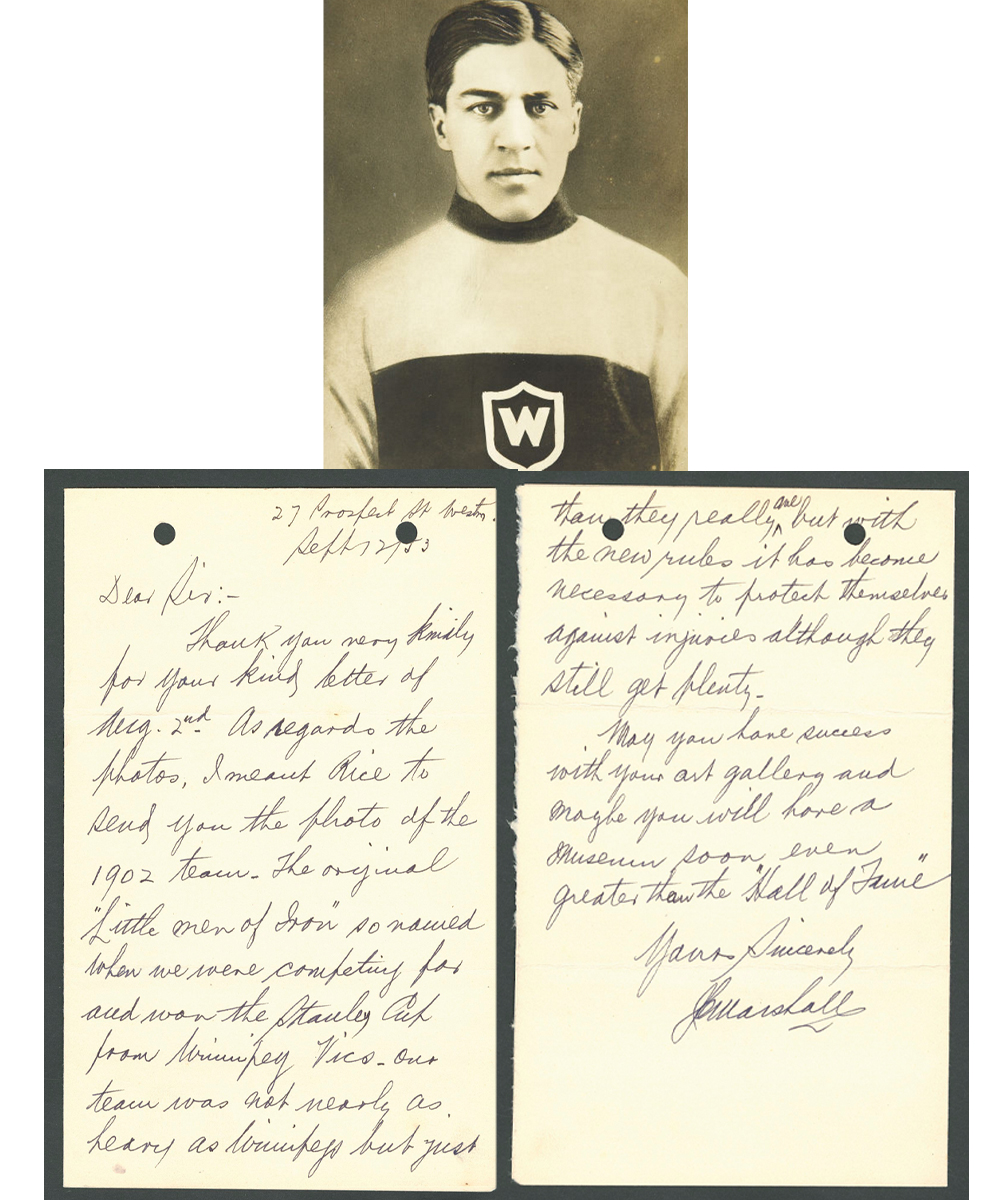 W
27 Prospect St Weston.
Sept 12/53
Dear Sir:-
Thank you very kindly
for your kind letter of
Aug. 2nd. As regards the
photos, I meant Rice to
send you the photo of the
1902 team - The original
"Little men of Iron" so named
when we were competing for
and won the Stanley Cup
from Winnipeg Vics - our
team was not nearly as
heavy as Winnipegs but just
than they really are but with
the new rules it has become
necessary to protect themselves
against injuries although they
still get plenty -
May you have success
with your art gallery and
maybe you will have a
museum soon, even
greater than the "Hall of Fame"
Yours Sincerely
JC Marshall